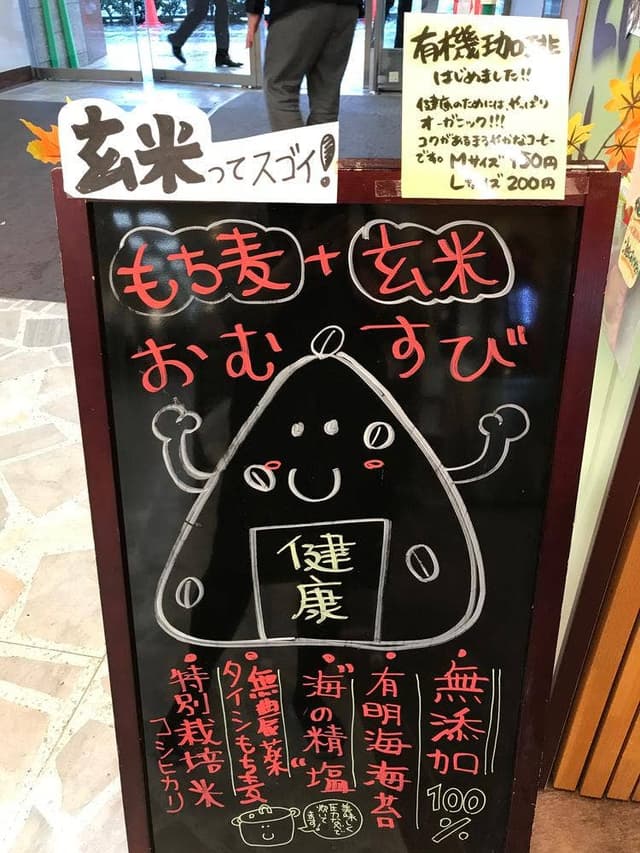 玄米ってスゴイ!
有機珈琲
はじめました!!
健康のためには、やっぱり
オーガニック!!!
コクがあるまろやかなコーヒー
です。Mサイズ150円
Lサイズ200円
もち麦+玄米
おむすび
健康
・無添加
100%
・有明海海苔
・"海の精"塩
・無農薬
ダイシモち麦
・特別栽培米
コシヒカリ
美味しく
圧力釜で
炊いて
ます!